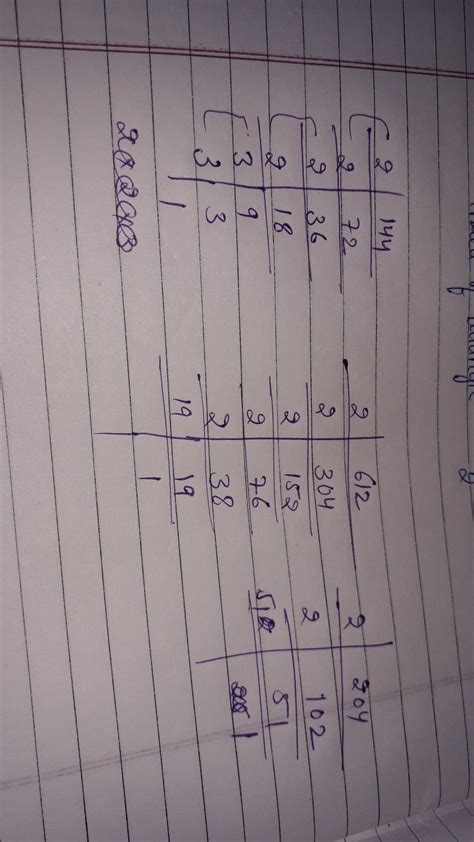 2 | 144
2 | 72
2 | 36
2 | 18
3 | 9
3 | 3
1
2 | 612
2 | 304
2 | 152
2 | 76
2 | 38
19 | 19
1
2 | 204
2 | 102
51
1